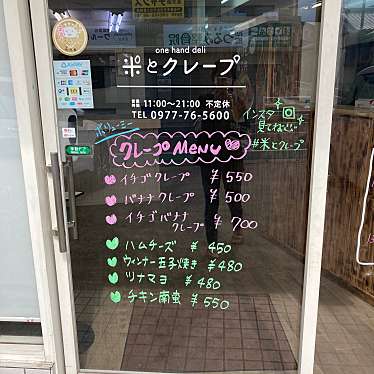 one hand deli
米とクレープ
11:00〜21:00 不定休
TEL 0977-76-5600
ボリューミー
クレープMENU
イチゴクレープ ¥550
バナナクレープ ¥500
イチゴバナナ
クレープ ¥700
ハムチーズ ¥450
ウィンナー玉子焼き ¥480
ツナマヨ ¥480
チキン南蛮 ¥550
インスタ
見てね!!
#米とクレープ